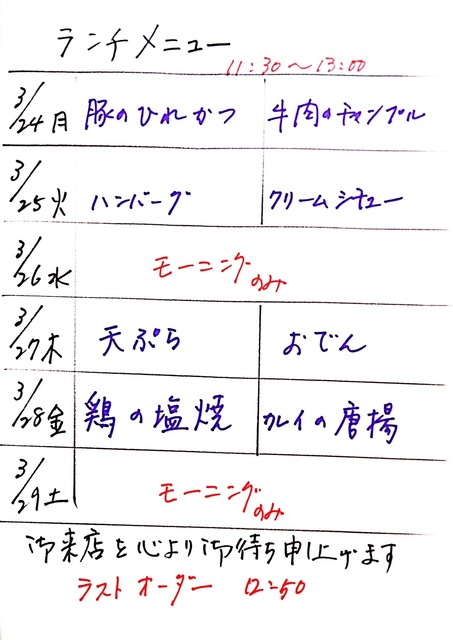 ランチメニュー
11:30〜13:00
3/24月 豚のひれかつ 牛肉のチャンプル
3/25火 ハンバーグ クリームシチュー
3/26水 モーニングのみ
3/27木 天ぷら おでん
3/28金 鶏の塩焼 カレイの唐揚
3/29土 モーニングのみ
御来店を心より御待ち申上げます
ラストオーダー 12:50